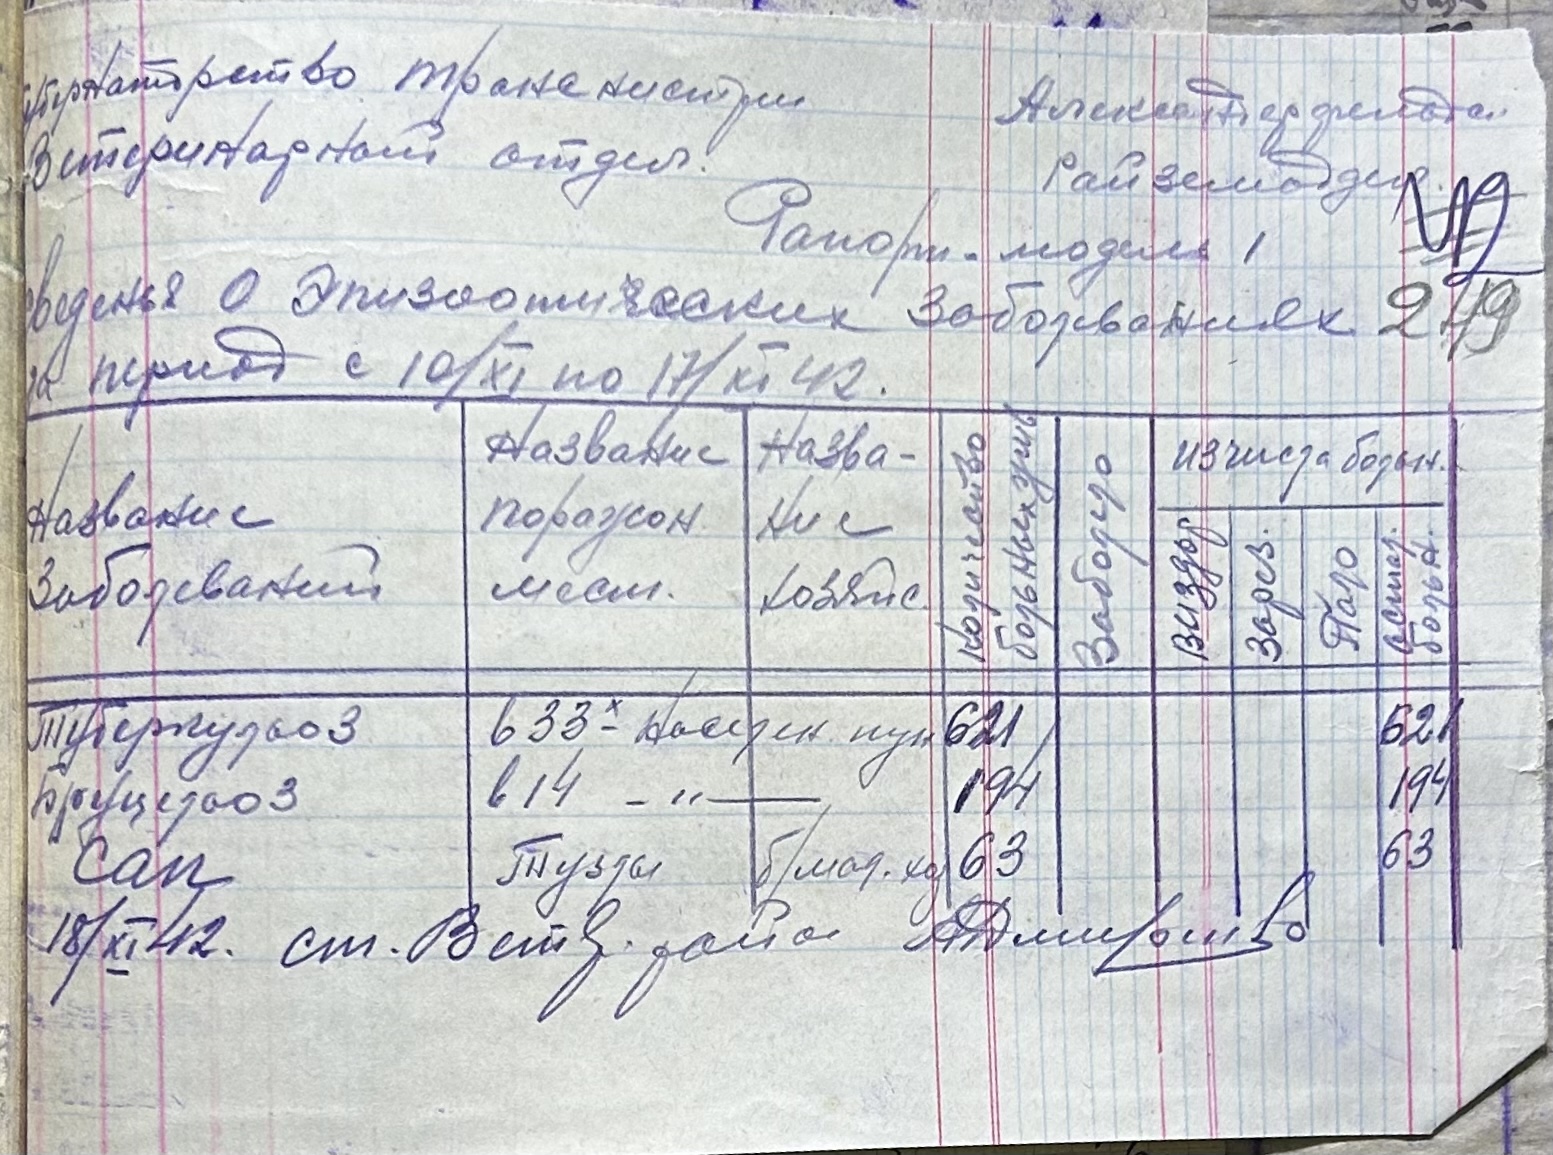 Губернаторство Транснистрии
Ветеринарный отдел.
Александерфельдск.
Райземотдел.
Рапорт. модель 1
Сведенья о Эпизоотических Заболеваниях 249
за период с 10/XI по 17/XI 42.
Название Заболеваний
Название поражон. мест.
Назва-
ние
хозяйс.
Количество больных думб
Заболело
из числа больн.
Виздор
Зарез.
Пало
остал. больн.
Туберкульоз в 33х населен. пун 621 621
Бруцельоз в 14 - " - 194 194
Сап Тузлы б/мол. хоз 63 63
18/XI 42. ст. Вет. района